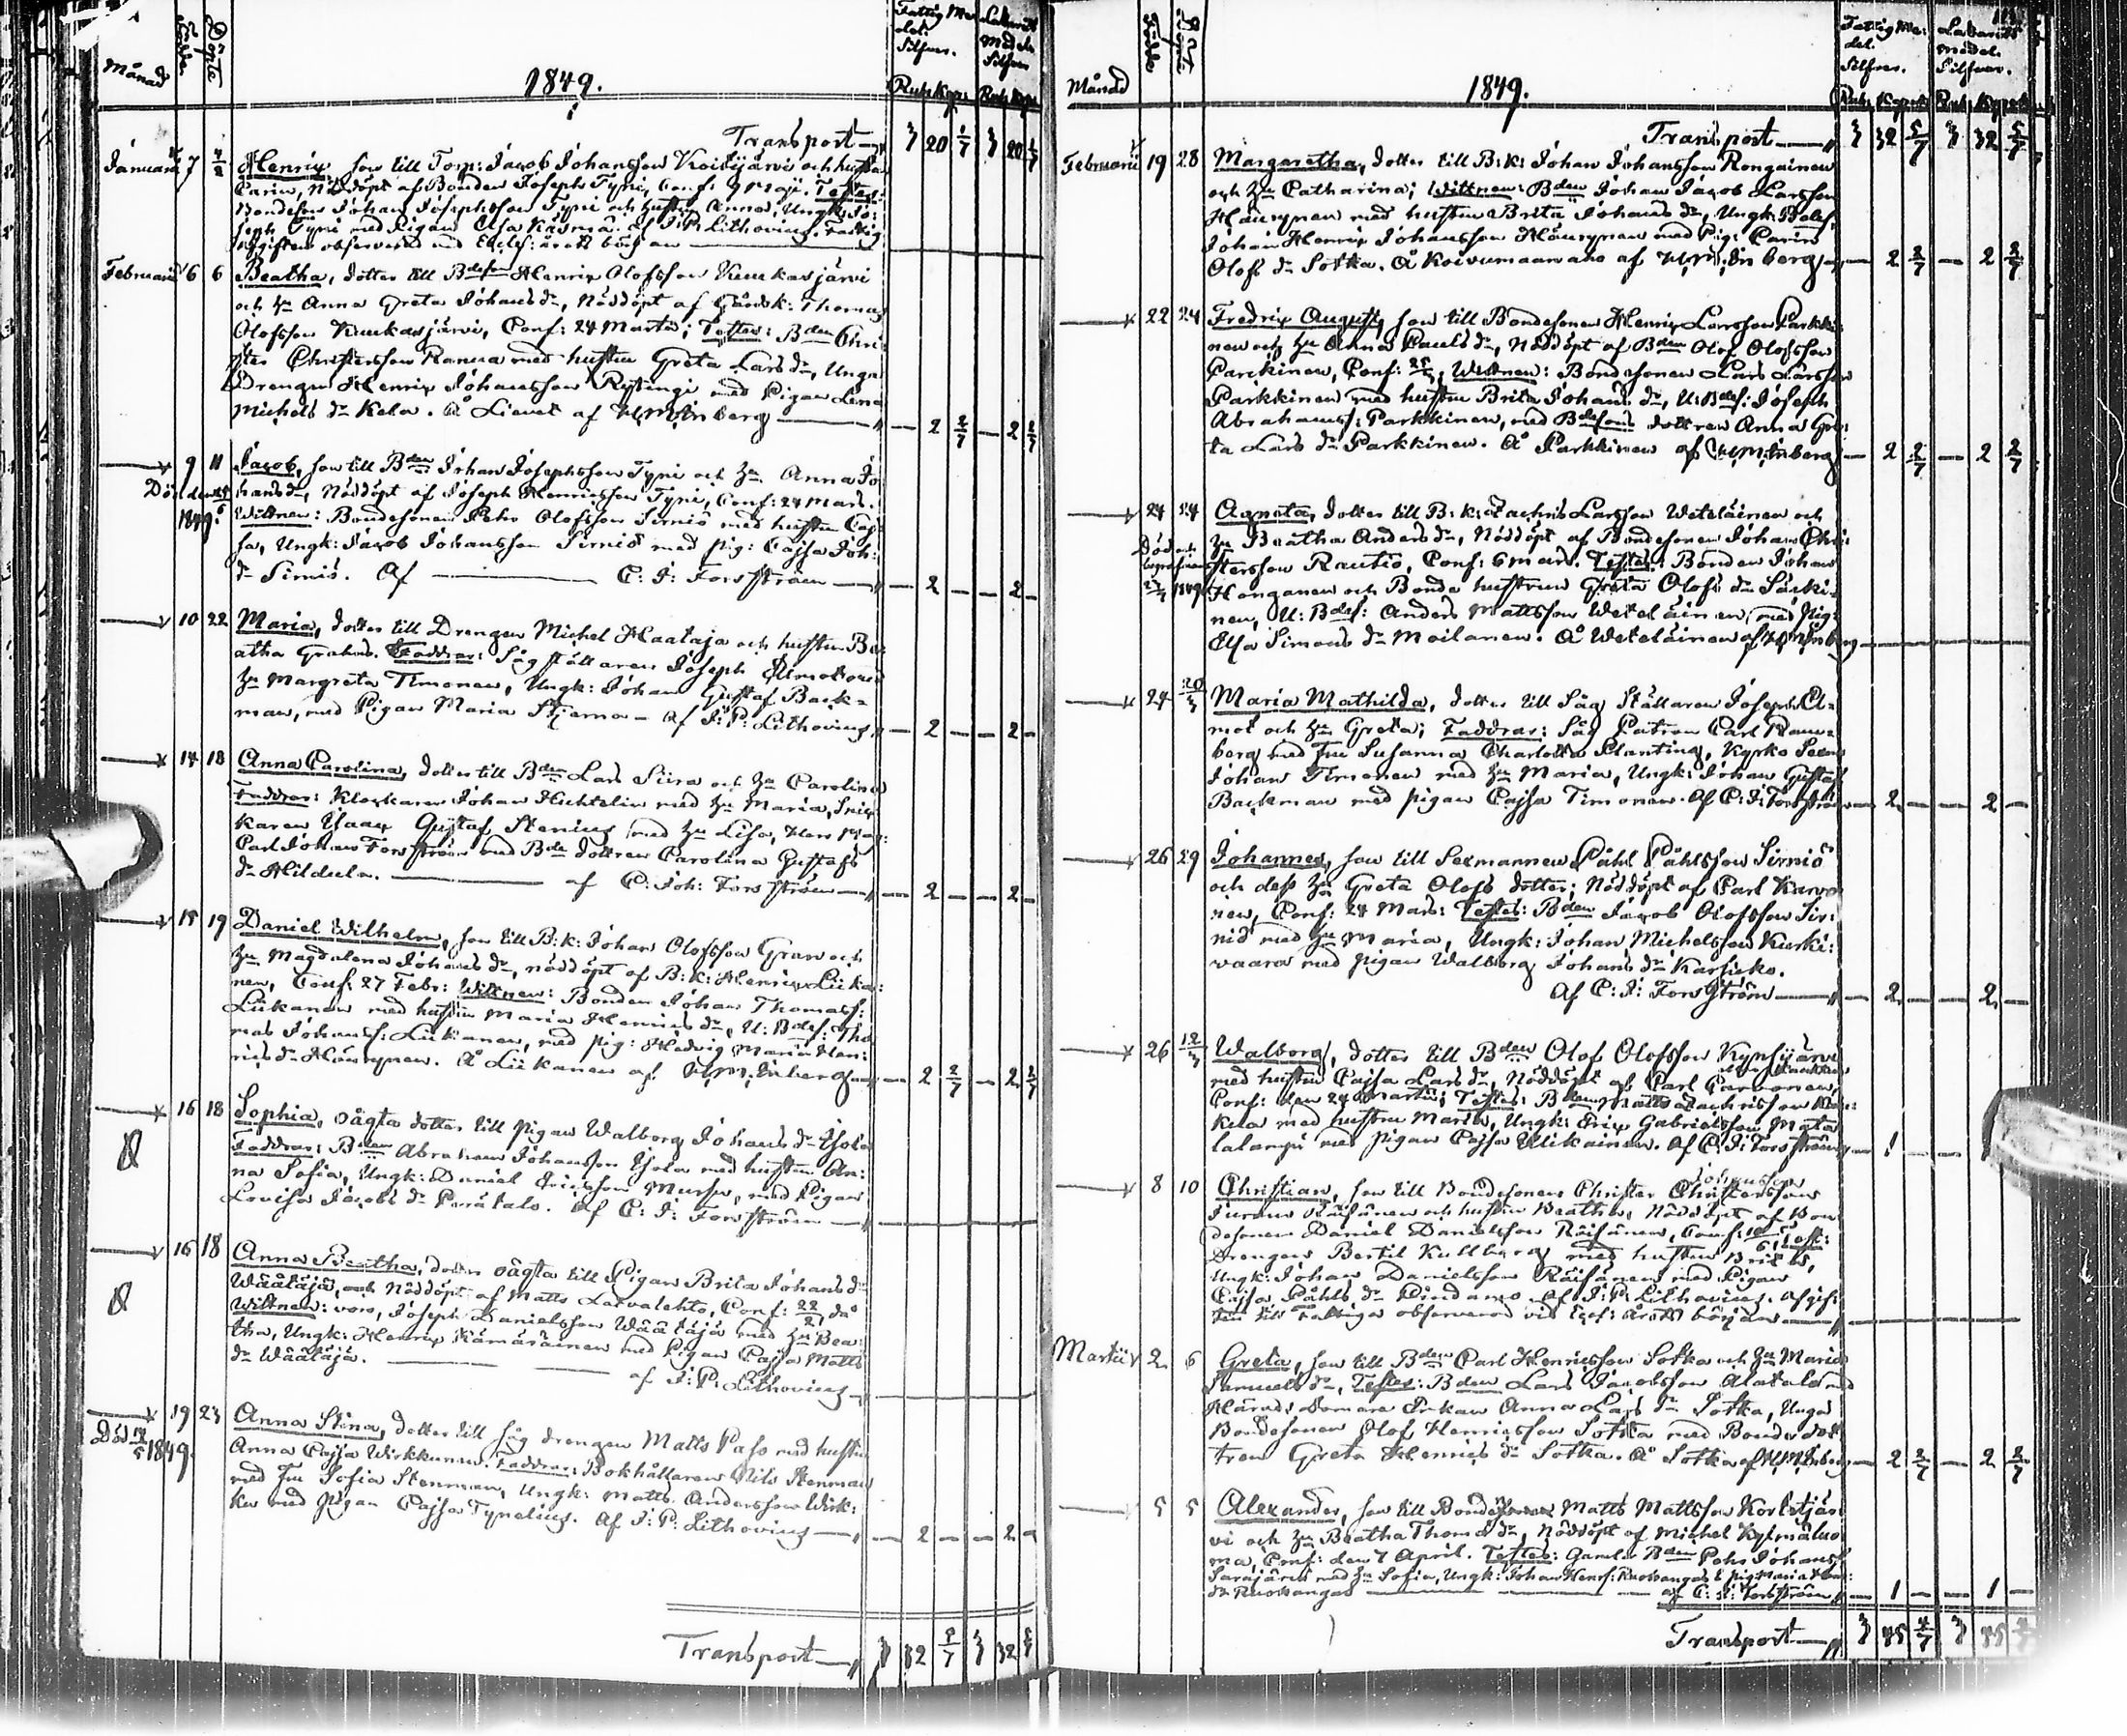 Månad Födde Döpte 1849. Fattig Medel. Silfver. Rub. Kop. Medel Silfver Rub. Kop.
Transport — 3 20 1/7 3 20 1/7
Januarii 7 Henrix, son till Torp: Jacob Johansson Koivujärvi och hustru
Carin, Nöddöpt af Bonden Joseph Tyni, Conf: Testes:
Bondeson Johan Josephsson Tyni och hustru Anna, Ungk: Jo-
seph Tyni med Pigan Lisa Käsmä. af J: P. Lithovius. Fattig
afgiften observerad vid början
Februarii 6 6 Beatha, dotter till Bdeson Henrix Olofsson Kuukasjärvi
och hu Anna Greta Johans dr, Nöddöpt af Gårdsk: Thomas
Olofsson Kuukasjärvi, Conf: 24 Martii; Testes: Bden Chri-
ster Christersson Ranua med hustru Greta Lars dr, Unge
Drengen Henrix Johansson Rytingi med Pigan Lena
Michels dr Kela. Å Lievet af Enberg — 2 2/7 — 2 2/7
9 11 Jacob, son till Bden Johan Josephsson Tyni och hu Anna Jo-
hans dr, Nöddöpt af Joseph Henricsson Tyni, Conf: 24 Mars.
1849. Wittnen: Bondesonen Pehr Olofsson Sirniö med hustru Caj-
sa, Ungk: Jacob Johansson Sirniö med pig: Cajsa Joh:
dr Sirniö. Af — C: J: Forsström — 2 — — 2 —
10 22 Maria, dotter till Drengen Michel Haataja och hustru Be-
atha Grahns. Faddrar: Sågställaren Joseph
hu Margreta Timonen, Ungk: Johan Gustaf Back-
man, med Pigan Maria Stjerna — af J: P: Lithovius — 2 — — 2 —
14 18 Anna Carolina, dotter till Bden Lars Siira och hu Carolina
Faddrar: Klockaren Johan Huhtelin med hu Maria, Snic-
karen Isaac Gustaf Stenius med hu Lisa,
Carl Johan Forsström med Bde dottren Carolina Gustafs
dr Hildula. — af C: Joh: Forsström — 2 — — 2 —
15 19 Daniel Wilhelm, son till B: k: Johan Olofsson Gran och
hu Magdalena Johans dr, nöddöpt af B: k: Henrix Liika-
nen, Conf: 27 Febr: Wittnen: Bonden Johan Thomass:
Liikanen med hustru Maria Henrics dr, U: Bdes: Tho-
mas Johanss: Liikanen, med pig: Hedvig Maria Hen-
rics dr Häurynen. Å Liikanen af Enberg — 2 2/7 — 2 2/7
16 18 Sophia, oägta dotter till pigan Walborg Johans dr Isola
Faddrar: Bden Abraham Johansson Isola med hustru An-
na Sofia, Ungk: Daniel Ericsson Mursu, med Pigan
Lovisa Jacobs dr Perätalo. Af C: J: Forsström —
16 18 Anna Beatha, dotter oägta till Pigan Brita Johans dr
Wäätäjä, och Nöddöpt af Matts Larvalehto, Conf: 22/2, då
Wittnen: voro, Joseph Danielsson Wäätäjä med hu Bea-
tha, Ungk: Henrix Kämäräinen med Pigan Cajsa Matts
dr Wäätäjä. — af J: P: Lithovius —
19 23 Anna Stina, dotter till Såg drengen Matts Paso med hustru
Död 1849. Anna Cajsa Wirkkunen. Faddrar: Bokhållaren Nils Stenman
med fru Sofia Stenman, Ungk: Matts Andersson Wirk-
ku med pigan Cajsa Tynelius. Af J: P: Lithovius — 2 — — 2 —
Transport — 3 32 5/7 3 32 5/7
Månad Födde Döpte 1849. Fattig Medel. Silfver. Rub. Kopek Lazaretts medel. Silfver. Rub. Kopek
Transport — 3 32 5/7 3 32 5/7
Februarii 19 28 Margaretha, dotter till B: k: Johan Johansson Rongainen
och hu Catharina; Wittnen: Bden Johan Jacob Larsson
Häurynen med hustru Brita Johans dr, Ungk: Bdes:
Johan Henrix Johansson Häurynen med Pig: Carin
Olofs dr Sotka. Å Koivumaan aho af Enberg — 2 2/7 — 2 2/7
22 24 Fredrix August, son till Bondesonen Henrix Larsson Parkki-
nen och hu Anna Pauls dr, Nöddöpt af Bden Olof Olofsson
Parkkinen, Conf: Wittnen: Bondesonen Lars Larsson
Parkkinen med hustru Brita Johans dr, U: Bdes: Joseph
Abrahamss: Parkkinen, med Bdesons dottren Anna Gre-
ta Lars dr Parkkinen. Å Parkkinen af Enberg — 2 2/7 — 2 2/7
24 24 Agneta, dotter till B: k: Zachris Larsson Weteläinen och
Död och hu Beatha Anders dr, Nöddöpt af Bondesonen Johan Chri-
stersson Rautio, Conf: 6 mars. Testes: Bonden Johan
1849 Honganen och Bonde hustrun Greta Olofs dr Särki-
nen, U: Bdes: Anders Mattsson Weteläinen, med Pig:
Elsa Simons dr Moilanen. Å Weteläinen af Enberg —
24 20/3 Maria Mathilda, dotter till Såg Ställaren Joseph El-
mot och hu Greta; Faddrar: Såg Patron Carl Raum-
berg med Fru Susanna Charlotta Planting, Kyrko
Johan Timonen med hu Maria, Ungk: Johan Gustaf
Backman med pigan Cajsa Timonen. Af C: J: Forsström — 2 — — 2 —
26 29 Johannes, son till Sexmannen Påhl Påhlsson Sirniö
och dess hu Greta Olofs dotter; Nöddöpt af Carl Karvo-
nen, Conf: 24 Mars: Testes: Bden Jacob Olofsson Sir-
niö med hu Maria, Ungk: Johan Michelsson Kurki-
vaara med pigan Walborg Johans dr Karsicko.
Af C: J: Forsström — 2 — — 2 —
26 12/3 Walborg, dotter till Bden Olof Olofsson Kynsijärvi
med hustru Cajsa Lars dr, Nöddöpt af Carl Karvonen,
Conf: den 24 Martii; Testes: Bden Matts Zachrisson
kela med hustru Maria, Ungk: Erix Gabrielsson Mata-
lalampi med pigan Cajsa Ulikainen. Af C: J: Forsström — 1 —
8 10 Christian, son till Bondesonen Christer Christersson
Räisänen och hustru Beatha, Nöddöpt af Bon-
desonen Daniel Danielsson Räisänen, Conf:
Drengen Bertil Kullberg med hustru Brita,
Ungk: Johan Danielsson Räisänen med Pigan
Cajsa Påhls dr Pindamo. Af J: P: Lithovius. Afgif-
ten till Fattiga observerad vid början —
Martii 2 6 Greta, son till Bden Carl Henricsson Sotka och hu Maria
Samuels dr, Testes: Bden Lars Jacobsson Alatalo med
Härads Domare Enkan Anna Lars dr Sotka, Unga
Bondesonen Olof Henricsson Sotka med Bonde dot-
tren Greta Henrics dr Sotka. Å Sotka af Enberg — 2 2/7 — 2 2/7
5 5 Alexander, son till Bonden Matts Mattsson Korteojär-
vi och hu Beatha Thomas dr, Nöddöpt af Michel Kylmäluo-
ma, Conf: den 7 April. Testes: Gamle Bden Pehr Johanss:
Sarajärvi med hu Sofia, Ungk: Johan Henrss: Ruokangas & pig Maria
dr Ruokangas — af C: J: Forsström — 1 — — 1 —
Transport — 3 45 4/7 3 45 4/7